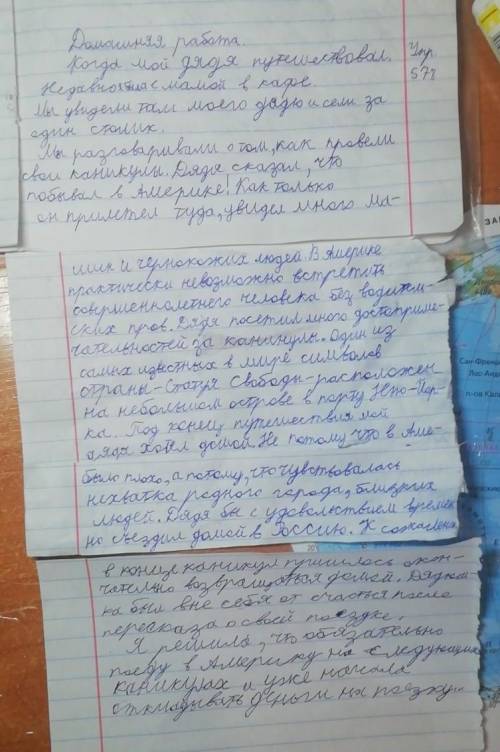 Домашняя работа.
Когда мой дядя путешествовал.
Упр.
578
Недавно шла с мамой в кафе.
Мы увидели там моего дядю и сели за
один столик.
Мы разговаривали о том, как провели
свои каникулы. Дядя сказал, что
побывал в Америке! Как только
он прилетел туда, увидел много ма-
шин и чернокожих людей. В Америке
практически невозможно встретить
совершеннолетнего человека без водитель-
ских прав. Дядя посетил много достоприме-
чательностей за каникулы. Один из
самых известных в мире символов
страны - Статуя Свободы - расположен
на небольшом острове в порту Нью-Йор-
ка. Под конец путешествия мой
дядя хотел домой. Не потому что в Аме-
было плохо, а потому, что чувствовалась
нехватка родного города, близких
людей. Дядя бы с удовольствием времен-
но съездил домой в Россию. К сожален
в конце каникул пришлось окон-
чательно возвращаться домой. Дядюш-
ка был вне себя от счастья после
пересказа о своей поездке.
Я решила, что обязательно
поеду в Америку на следующих
каникулах и уже начала
откладывать деньги на поездку.
ЗА
Сан-Франц
Лос-Анд
п-ов Кала